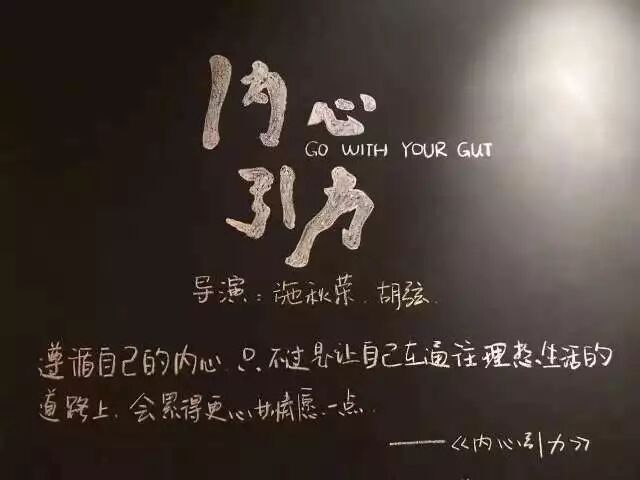 内心
GO WITH YOUR GUT
引力
导演：施秋荣、胡弦
遵循自己的内心，只不过是让自己在通往理想生活的
道路上，会累得更心甘情愿一点
——《内心引力》